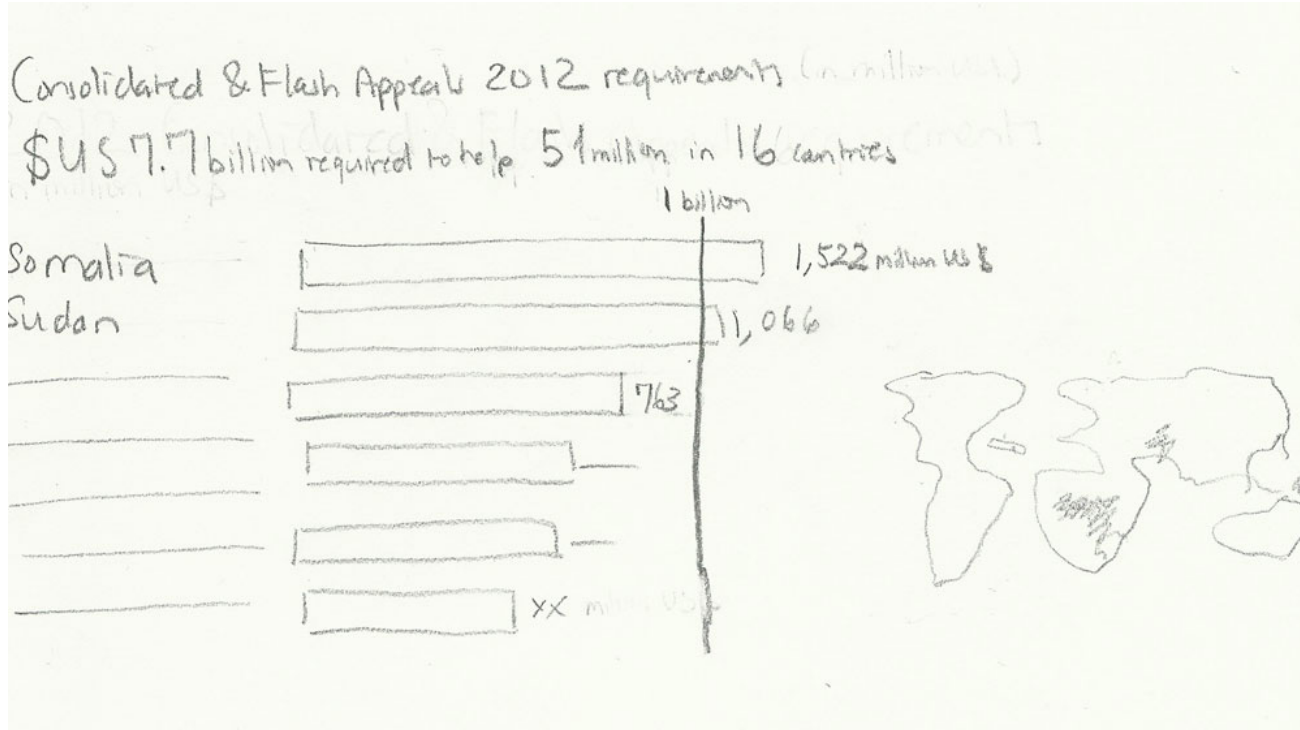 Consolidated & Flash Appeals 2012 requirements (in million US$)
$US 7.7 billion required to help 51 million in 16 countries
1 billion
Somalia 1,522 million US $
Sudan 1,066
763
XX million US$